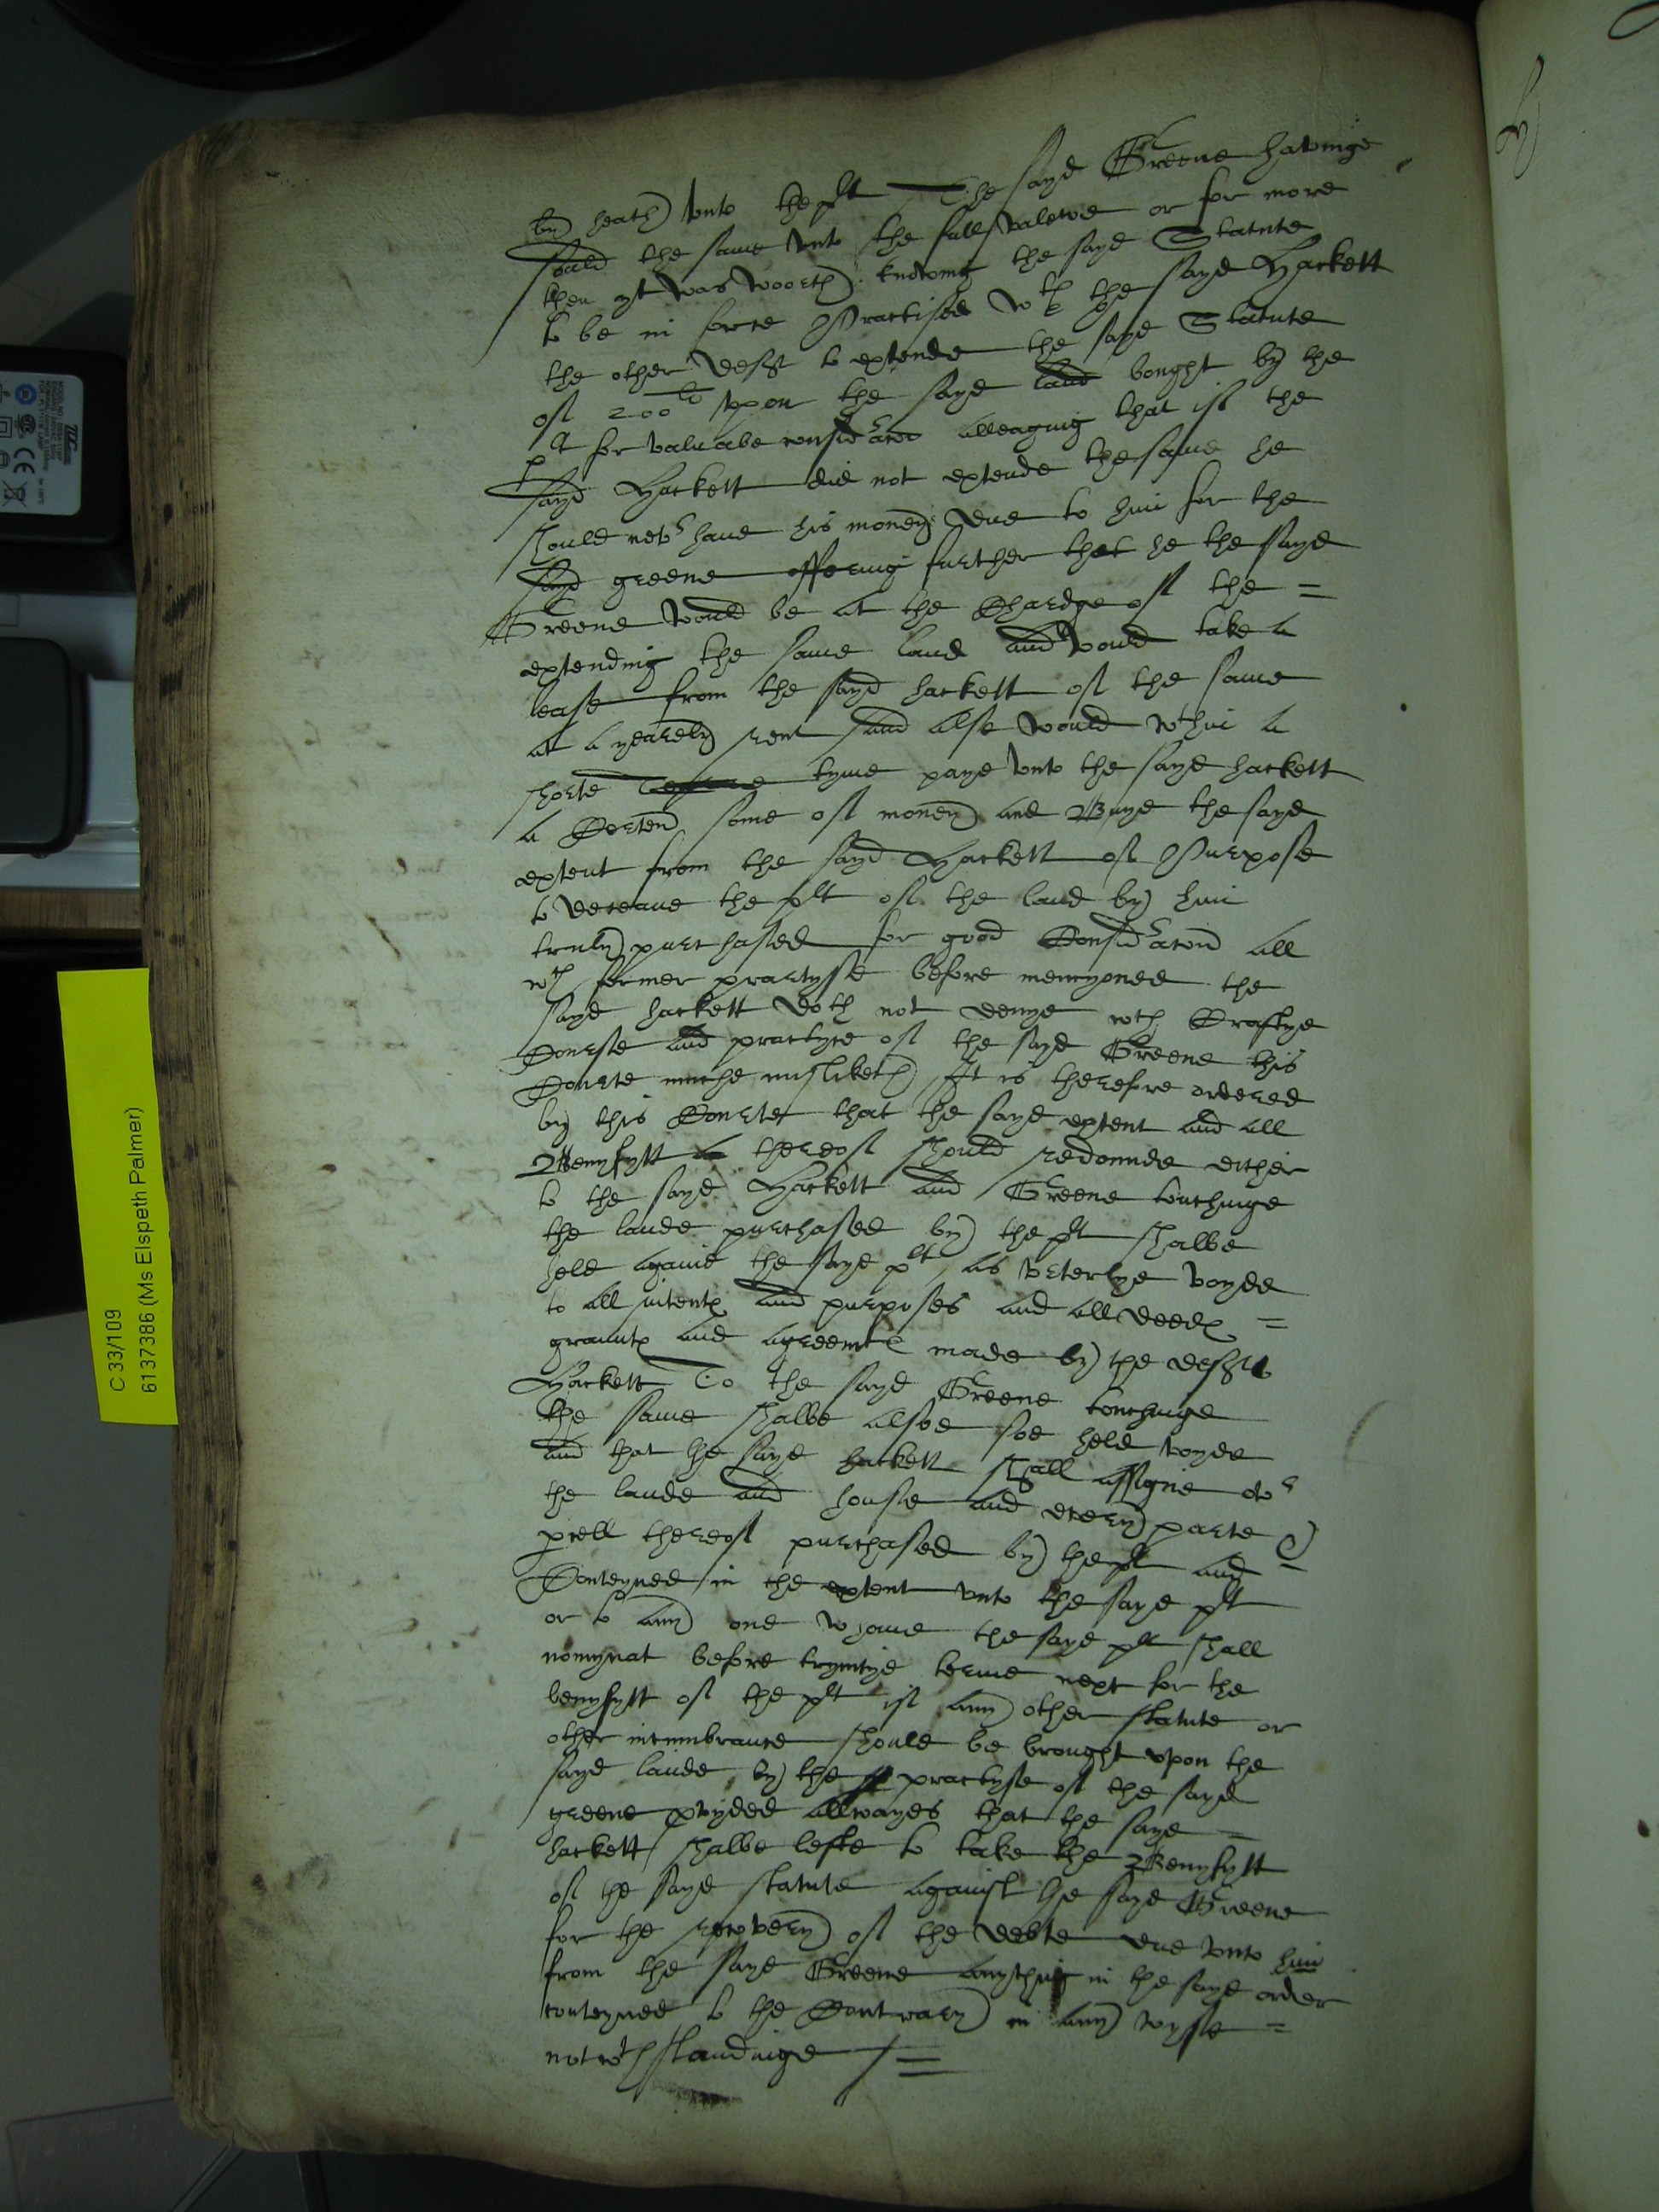 by heath vnto the plt The sayd Greene havinge
sould the same vnto the full valewe or for more
then yt was woorth knowing the sayd Statute
to be in force Practised wth the sayd Hackett
the other deft to extende the sayd Statute
of 200li vpon the sayd land bought by the
plt for valuabe considracon alleaging that if the
sayd Hackett did not extende the same he
should nevr haue his money due to him for the
sayd greene offering further that he the sayd
Greene would be at the Chardge of the =
extending the same land and would take a
lease from the sayd hackett of the same
at a yearely rent and also would wthin a
shorte tyme paye vnto the sayd hackett
a Certen some of money and Buye the sayd
extent from the sayd Hackett of Purpose
to deceaue the plt of the land by him
truly purchased for good Considracon all
wch former practysse before mencyoned the
sayd hackett doth not denye wch Craftye
Course and practyce of the sayd Greene this
Courte muche misliketh It is therefore ordered
by this Courte that the sayd extent and all
Benyfytt thereof should redounde either
to the sayd Hackett and Greene touchinge
the lande purchased by the plt shalbe
held against the sayd plt as vtterlye voyde
to all intents and purposes and all deeds =
graunts and agreemts made by the deft
Hackett To the sayd Greene touchinge
the same shalbe alsoe soe held voyde
and that he sayd hackett shall assigne ovr
the lande and house and every parte &
pcell thereof purchased by the plt and =
Conteyned in the extent vnto the sayd plt
or to any one whome the sayd plt shall
nomynat before trynitye terme next for the
benyfytt of the plt if any other statute or
other incumbrance should be brought vpon the
sayd lande by the practyse of the sayd
greene pvyded allwayes that the sayd =
hackett shalbe lefte to take the Benyfytt
of the sayd statute against the sayd Greene
for the recovery of the debte due vnto him
from the sayd Greene anything in the sayd order
conteyned to the Contrary in any wyse =
notwthstandinge / =
C 33/109
6137386 (Ms Elspeth Palmer)